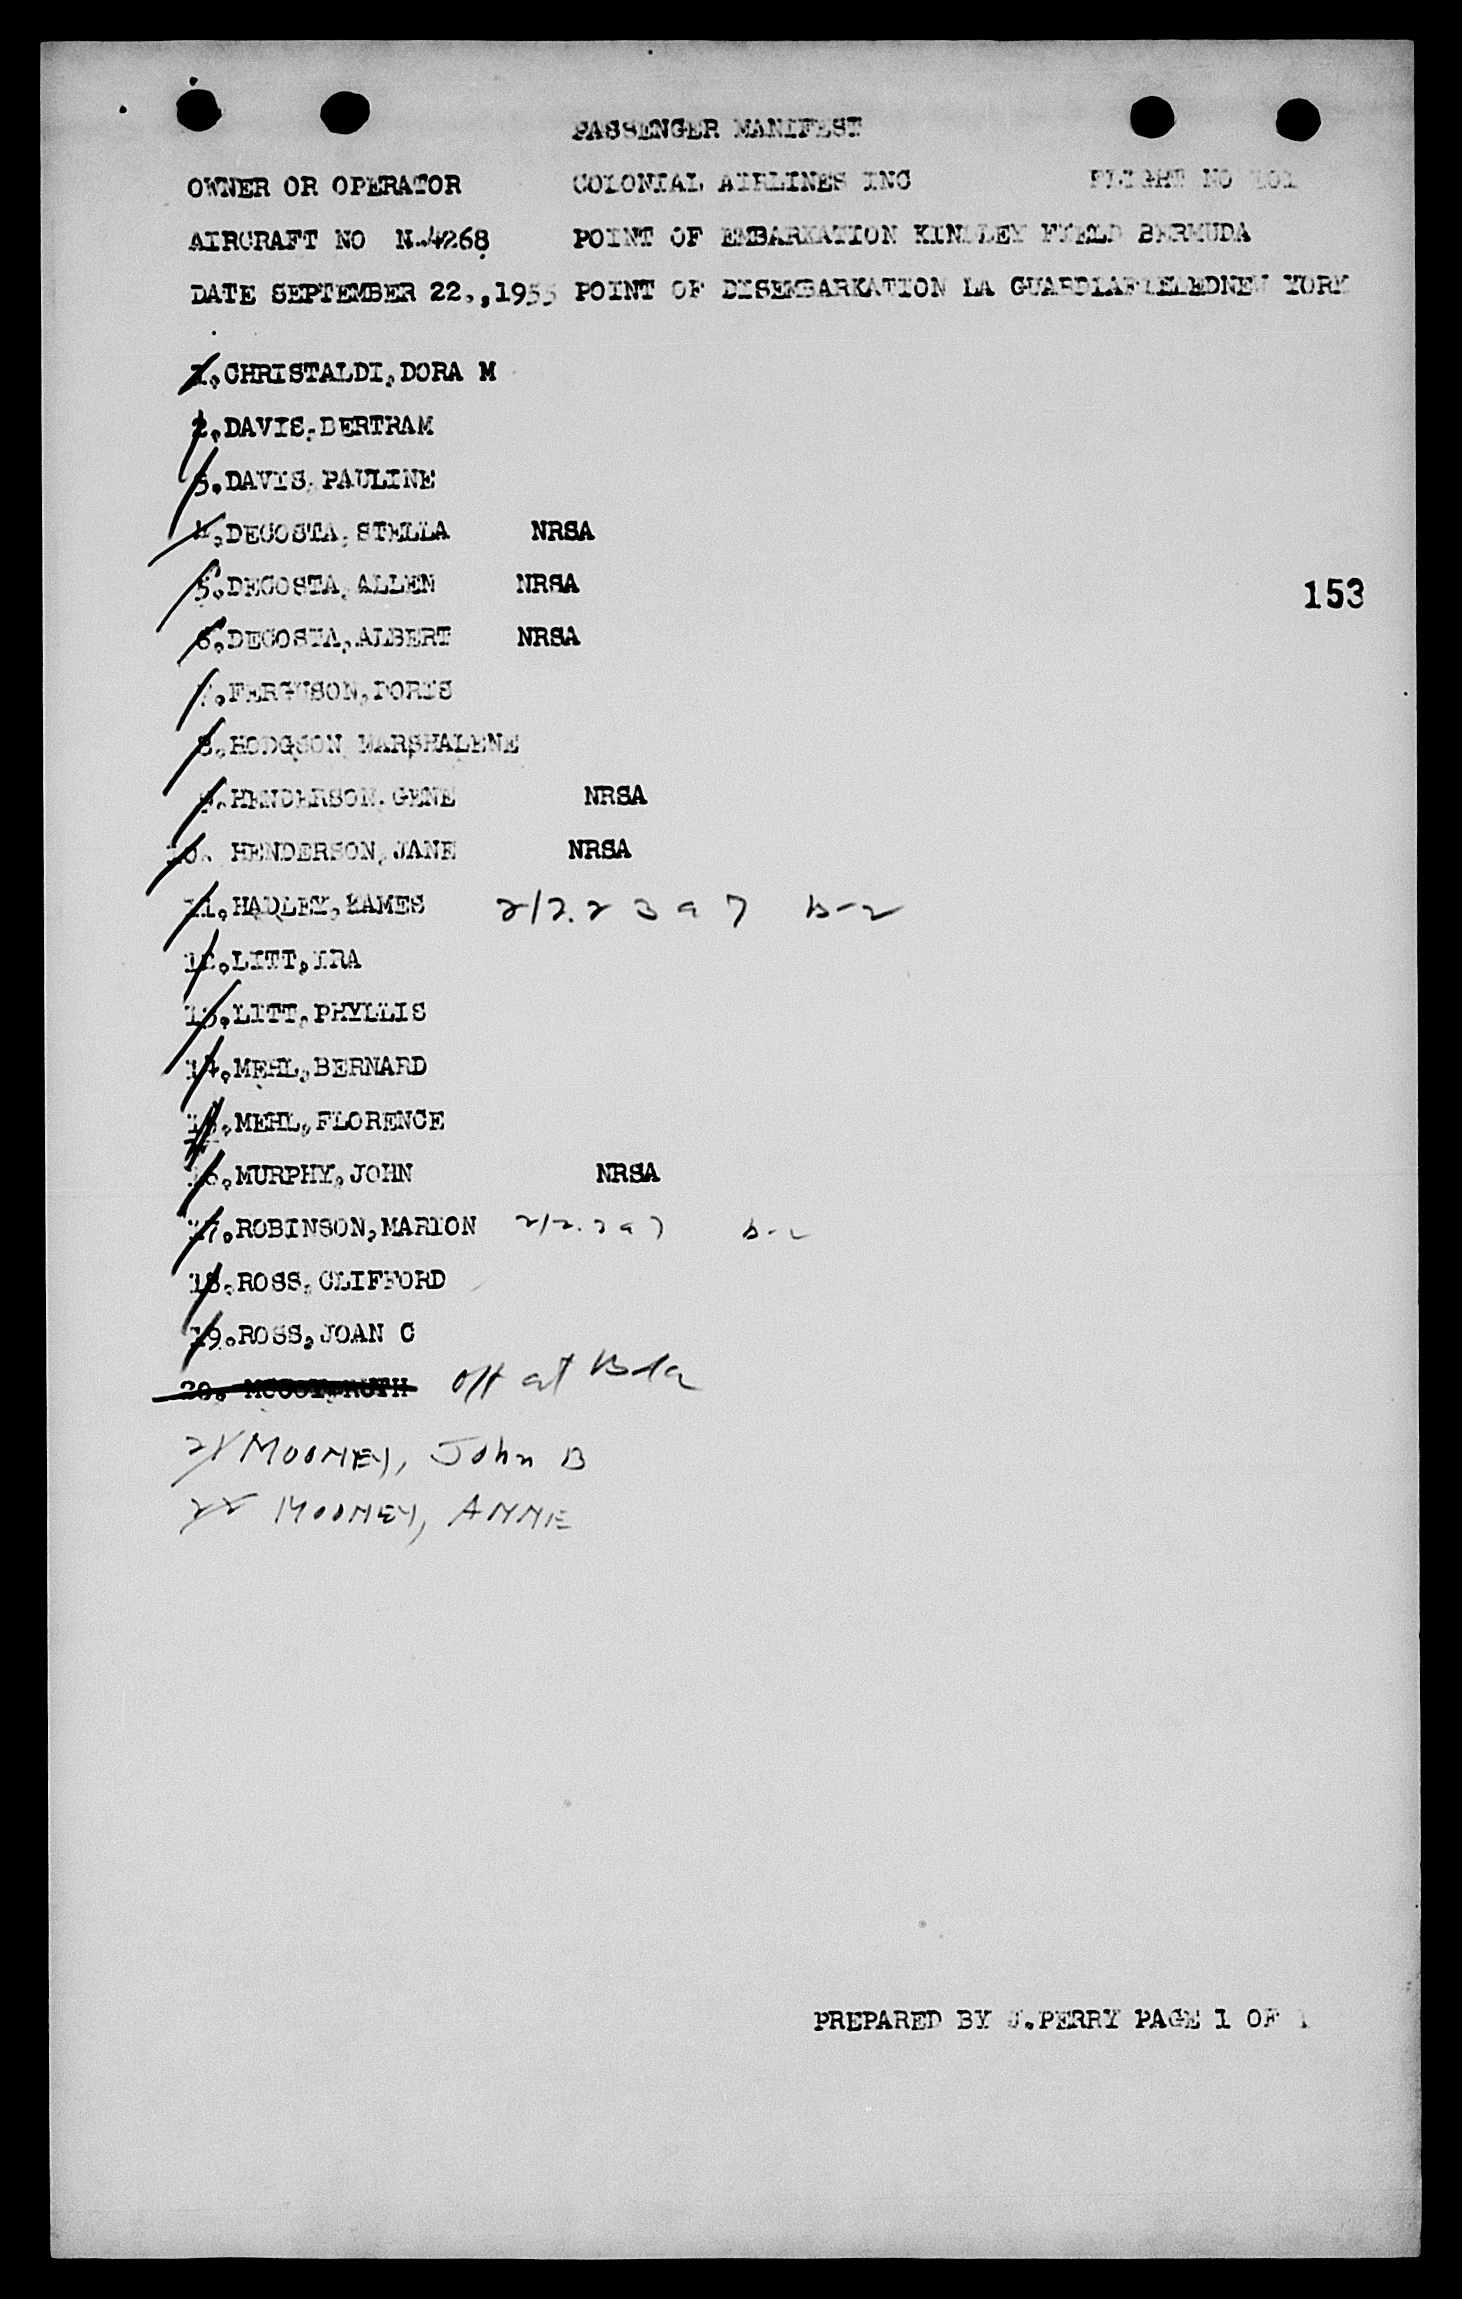 PASSENGER MANIFEST
OWNER OR OPERATOR COLONIAL AIRLINES INC FLIGHT NO 101
AIRCRAFT NO N-4268 POINT OF EMBARKATION KINDLEY FIELD BERMUDA
DATE SEPTEMBER 22.,1955 POINT OF DISEMBARKATION LA GUARDIA
1.CHRISTALDI,DORA M
2.DAVIS,BERTRAM
3.DAVIS, PAULINE
4.DECOSTA, STELLA NRSA
5.DECOSTA, ALLEN NRSA
153
6.DECOSTA,ALBERT NRSA
7.FERGUSON,DORIS
8.HODGSON MARSHALENE
9.HENDERSON, GENE NRSA
10. HENDERSON, JANE NRSA
11.HADLEY, 212.23a7 b-2
12.LITT,IRA
13.LITT, PHYLLIS
14.MEHL,BERNARD
15.MEHL,FLORENCE
16.MURPHY,JOHN NRSA
17.ROBINSON,MARION b-2
18.ROSS, CLIFFORD
19.ROSS,JOAN C
20. RUTH off at Bda
21 MOONEY, John B
22 MOONEY, ANNE
PREPARED BY J.PERRY PAGE 1 OF 1